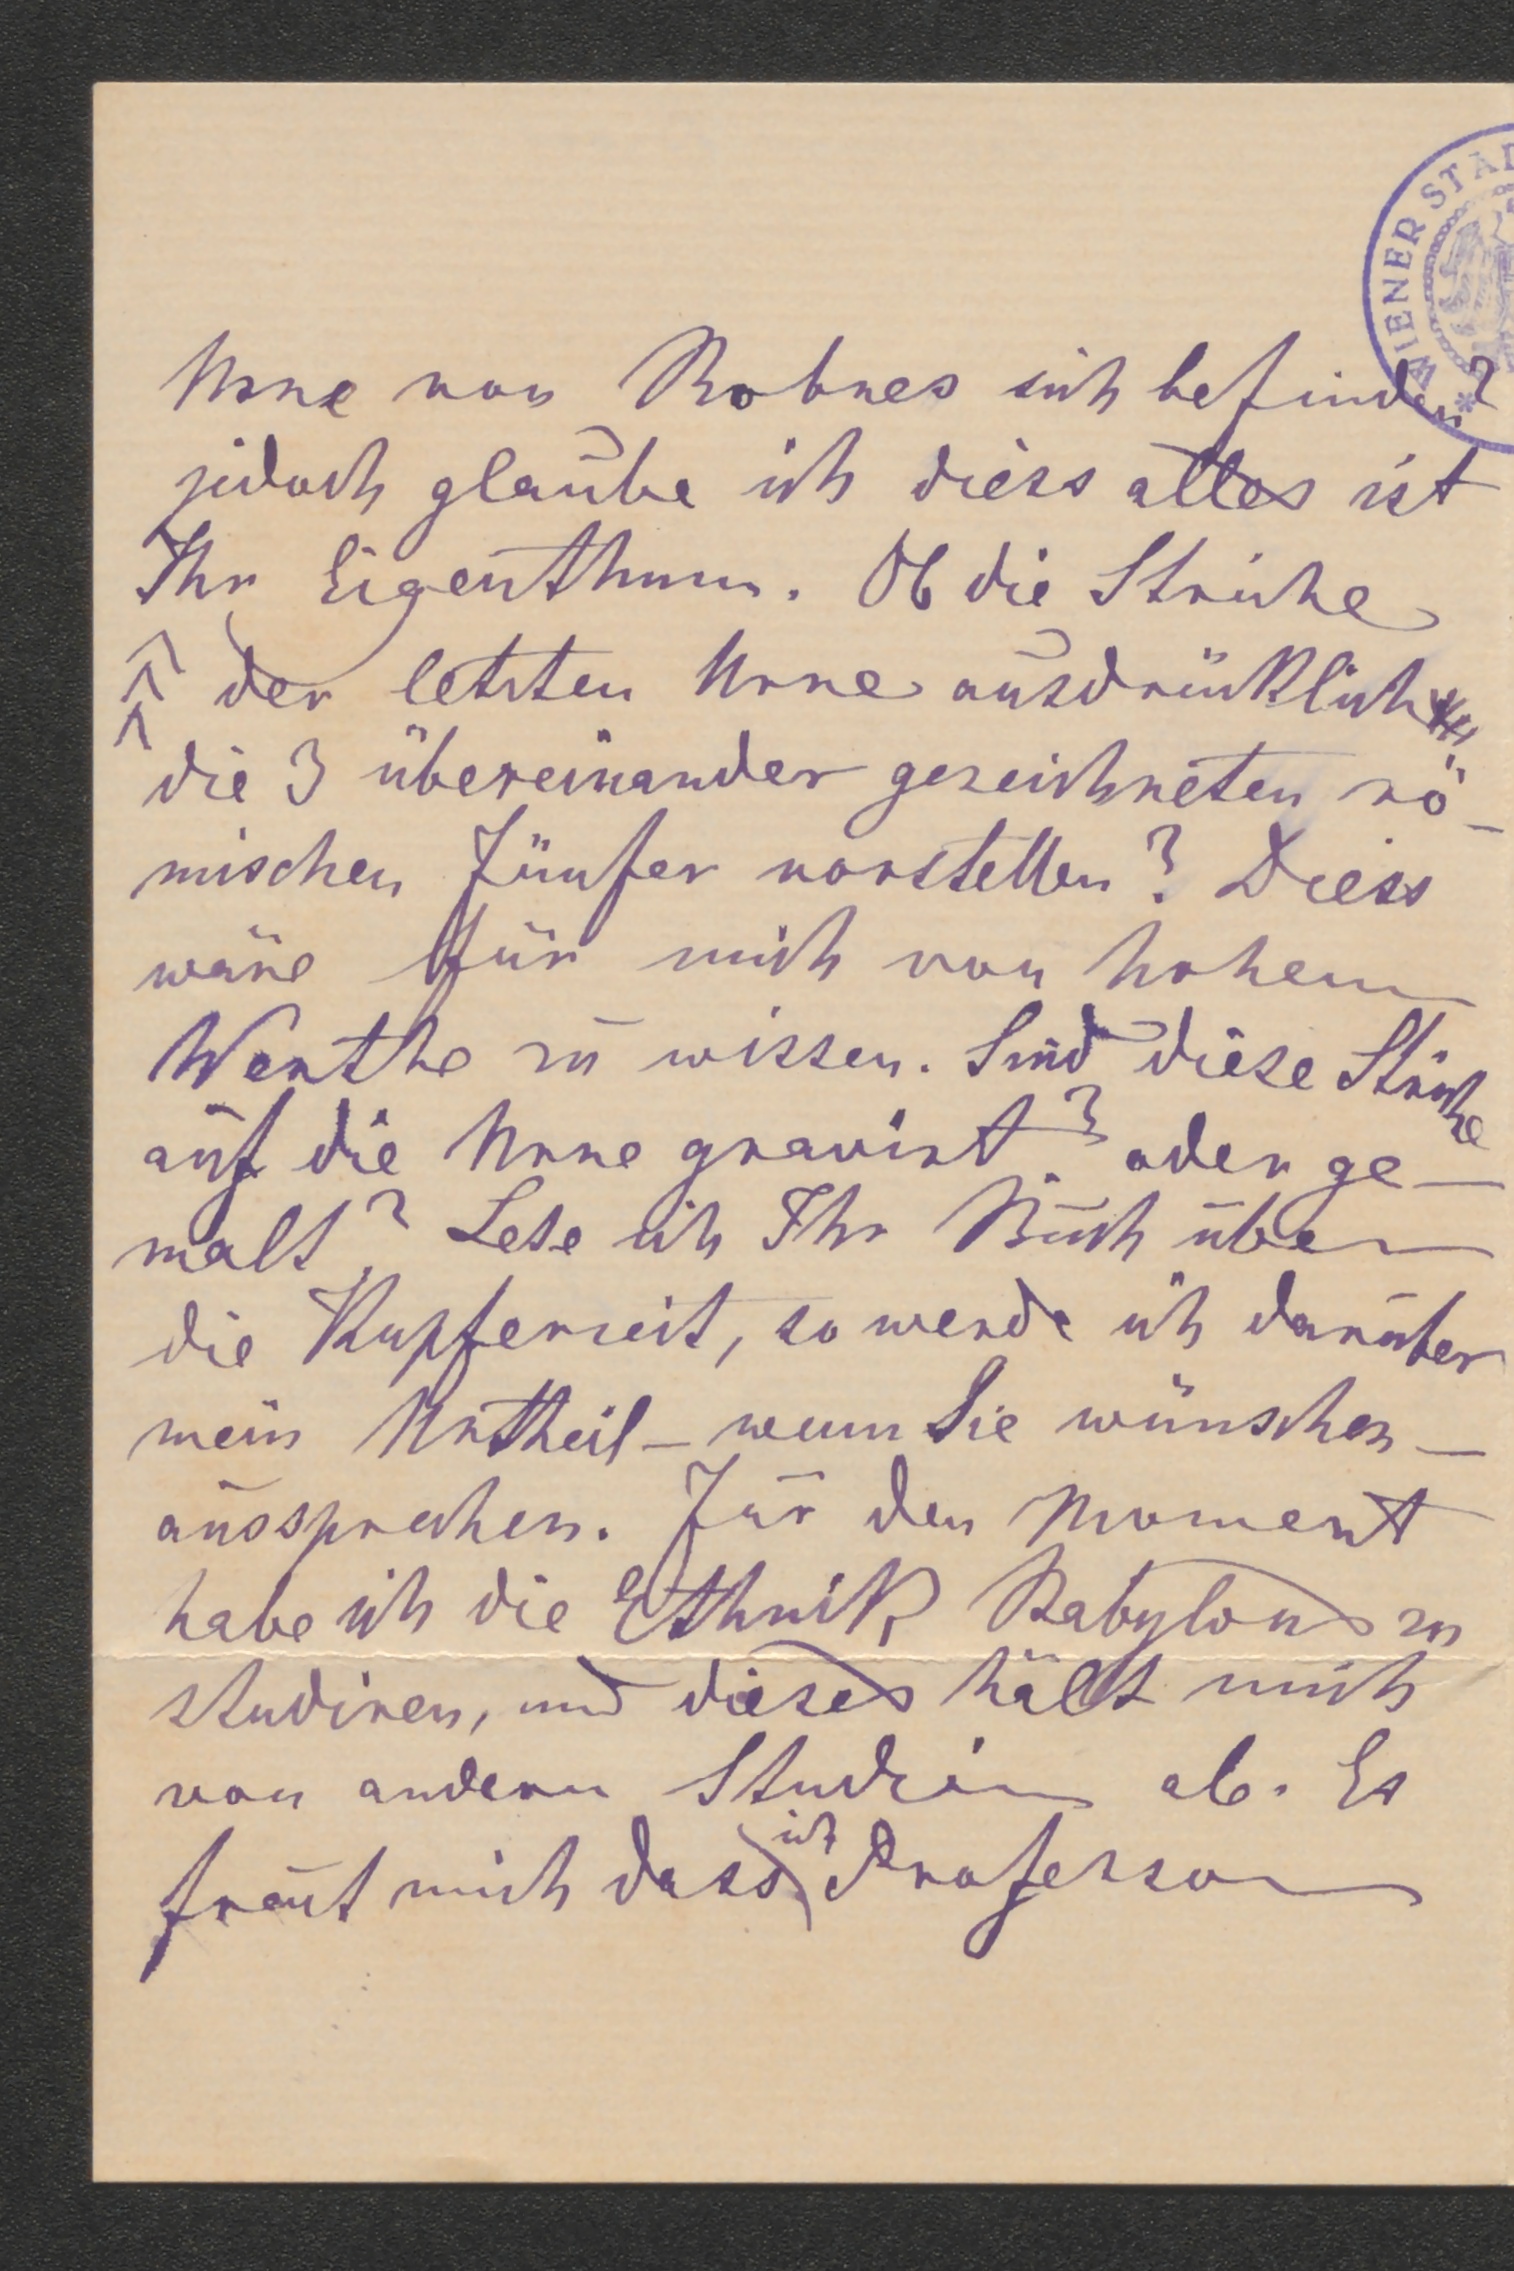 WIENER STAD
Urne von Bobnes sich befinden?
jedoch glaube ich diess alles ist
Ihr Eigenthum. Ob die Striche
der letzten Urne ausdrücklich
die 3 übereinander gezeichneten rö-
mischen Fünfer vorstellen? Diess
wäre für mich von hohem
Werthe zu wissen. Sind diese Striche
auf die Urne gravirt? oder ge-
malt? Lese ich Ihr Buch über
die Kupferzeit, so werde ich darüber
mein Urtheil – wenn Sie wünschen –
aussprechen. Für den Moment
habe ich die Ethnik Babylons zu
studiren, und dieses hält mich
von andern Studien ab. Es
freut mich dass ich Professor